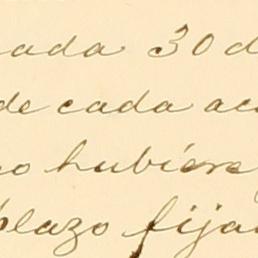 cada 30 d
de cada ac
no hubiere
plazo fija